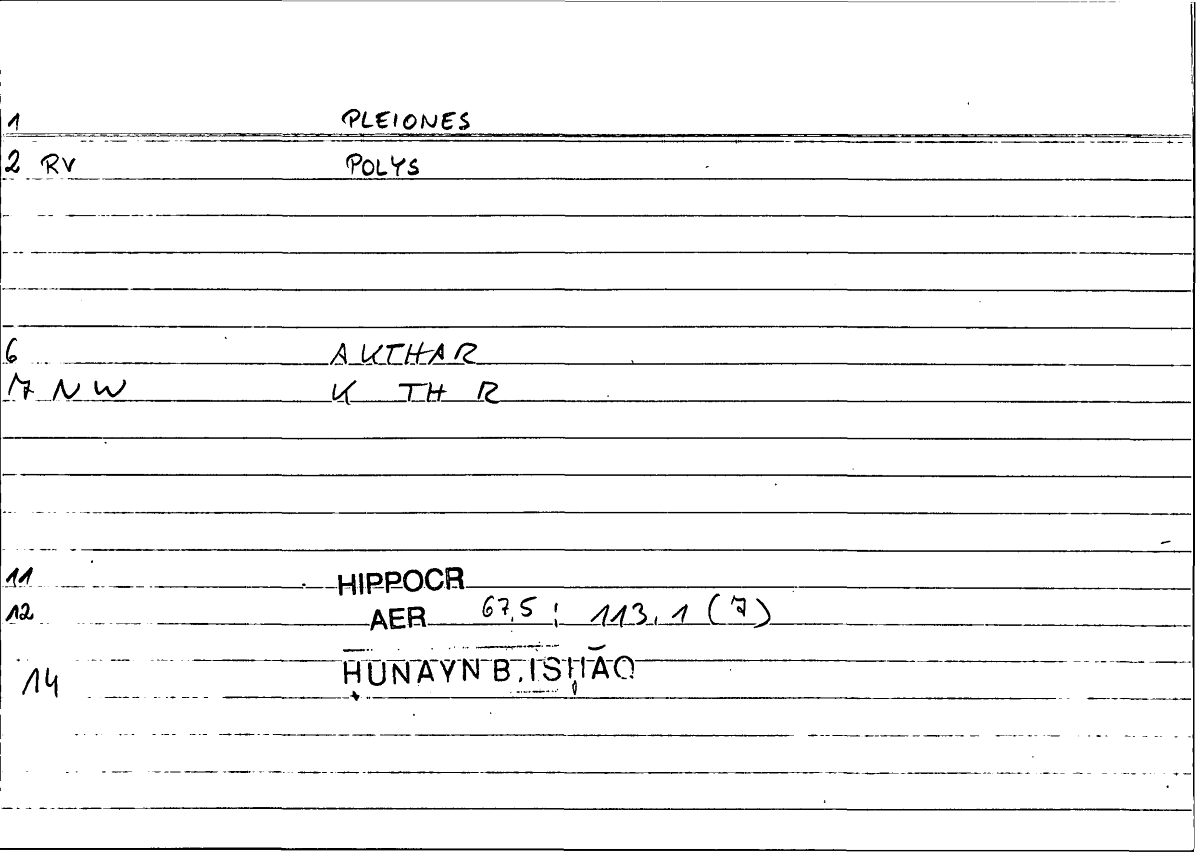 1 PLEIONES
2 RV POLYS
6 AKTHAR
7 NW K TH R
11 HIPPOCR
12 AER 67,5 ; 113,1 (7)
14 ḤUNAYN B. ISḤĀQ